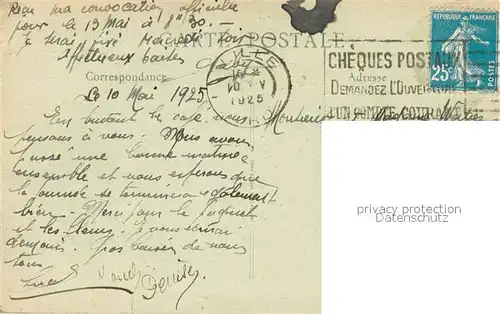 Reçu ma convocation officielle
pour le 13 Mai à 1h30. —
Je serai fixé Mercredi soir
Affectueux baisers
CARTE POSTALE
Correspondance
Adresse
VILLE
10 V
1925
CHÈQUES POSTAUX
DEMANDEZ L'OUVERTURE
D'UN COMPTE COURANT
25c
POSTES
Le 10 Mai 1925
En buvant le café, nous
pensons à vous. Nous avons
passé une bonne matinée
ensemble et nous espérons que
la journée se terminera également
bien. Merci pour le paquet
et les fleurs. Je vous écrirai
demain. Gros baisers de nous
tous
Denise
Monsieur Madame
privacy protection
DATENSCHUTZ